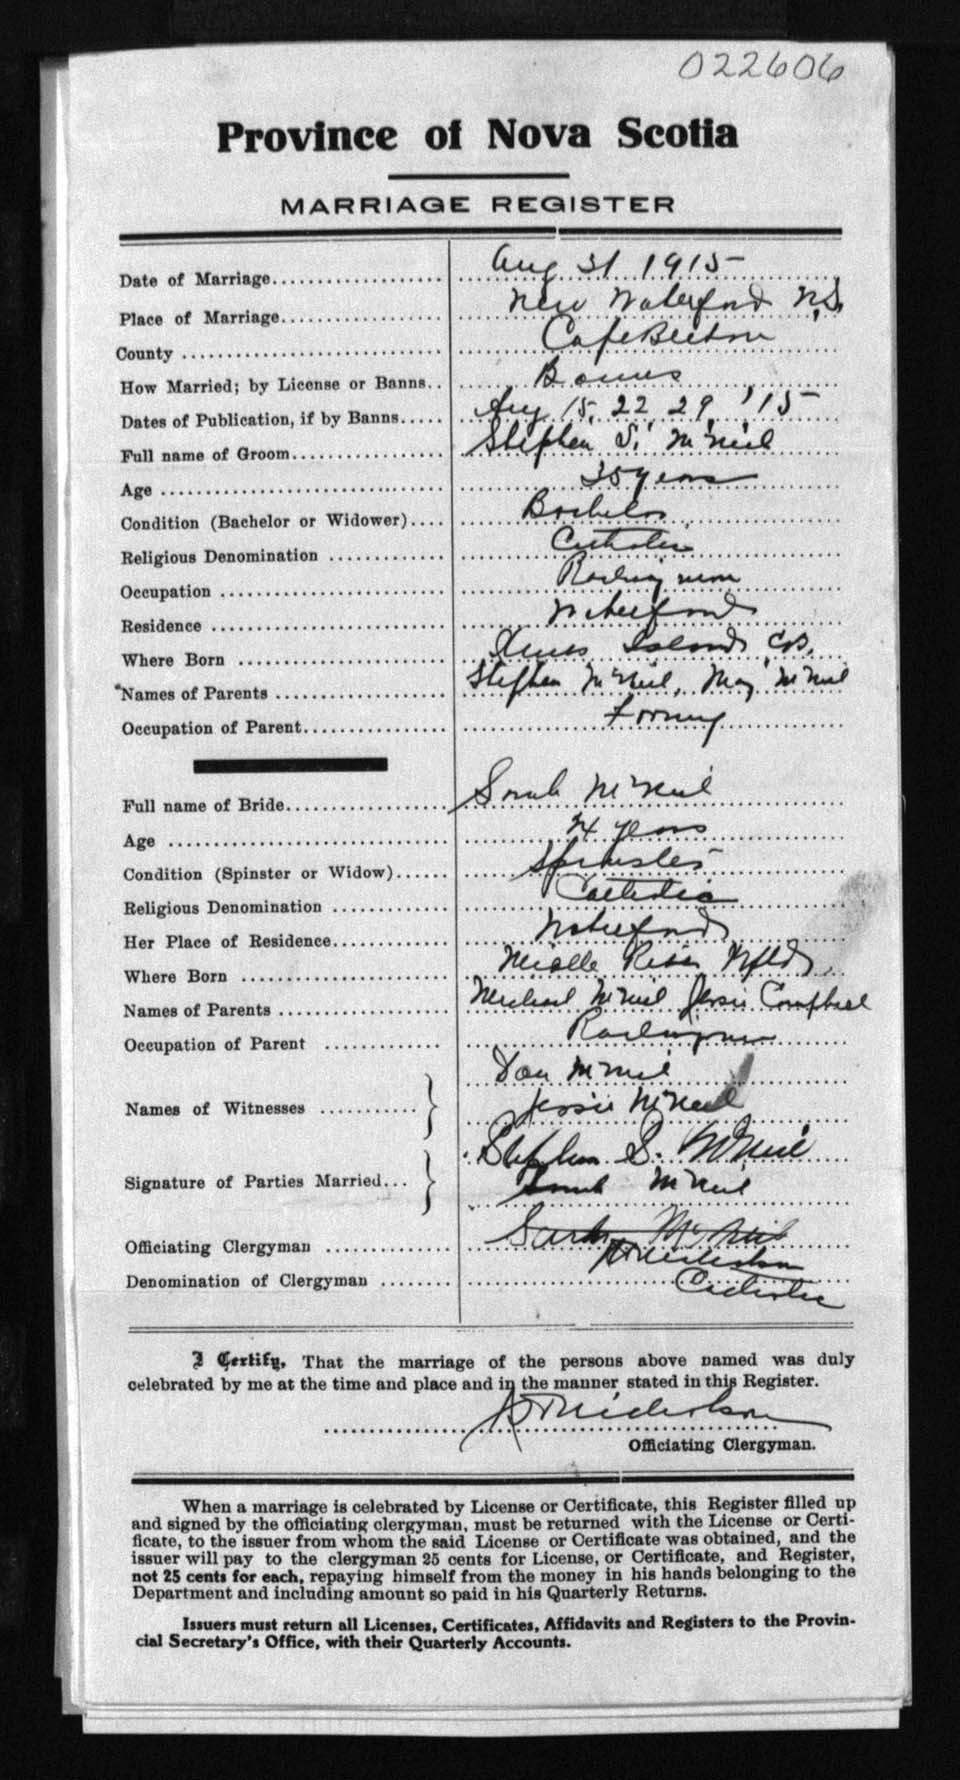 022606
Province of Nova Scotia
MARRIAGE REGISTER
Date of Marriage Aug 31 1915
Place of Marriage New Waterford N.S.
County Cape Breton
How Married; by License or Banns Banns
Dates of Publication, if by Banns Aug 15, 22 29, '15
Full name of Groom Stephen S. McNeil
Age 35 years
Condition (Bachelor or Widower) Bachelor
Religious Denomination Catholic
Occupation Railway man
Residence Waterford
Where Born Island C.B.
Names of Parents Stephen McNeil, Mary McNeil
Occupation of Parent Farming
Full name of Bride Sarah McNeil
Age 24 years
Condition (Spinster or Widow) Spinster
Religious Denomination Catholic
Her Place of Residence Waterford
Where Born River Nfld,
Names of Parents Michael McNeil Jessie Campbell
Occupation of Parent Railwayman
Dan McNeil
Names of Witnesses
Jessie McNeil
Stephen S. McNeil
Signature of Parties Married
Sarah McNeil
Officiating Clergyman Sarah McNeil
Nicholson
Denomination of Clergyman Catholic
I Certify, That the marriage of the persons above named was duly
celebrated by me at the time and place and in the manner stated in this Register.
Nicholson
Officiating Clergyman.
When a marriage is celebrated by License or Certificate, this Register filled up
and signed by the officiating clergyman, must be returned with the License or Certi-
ficate, to the issuer from whom the said License or Certificate was obtained, and the
issuer will pay to the clergyman 25 cents for License, or Certificate, and Register,
not 25 cents for each, repaying himself from the money in his hands belonging to the
Department and including amount so paid in his Quarterly Returns.
Issuers must return all Licenses, Certificates, Affidavits and Registers to the Provin-
cial Secretary's Office, with their Quarterly Accounts.